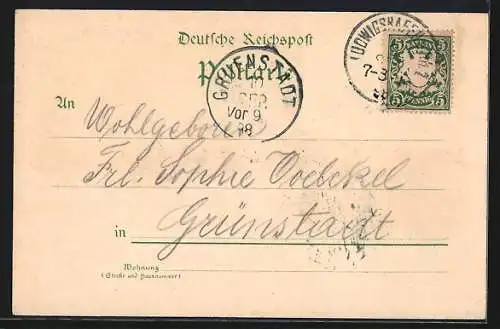 Deutsche Reichspost
Postkarte
LUDWIGSHAFEN
7-
BAYERN
5 5
PFENNIG
GRUENSTADT
10
SEP
Vor 9
98
An
Wohlgeboren
Frl. Sophie
Grünstadt
in
Wohnung
(Straße und Hausnummer)